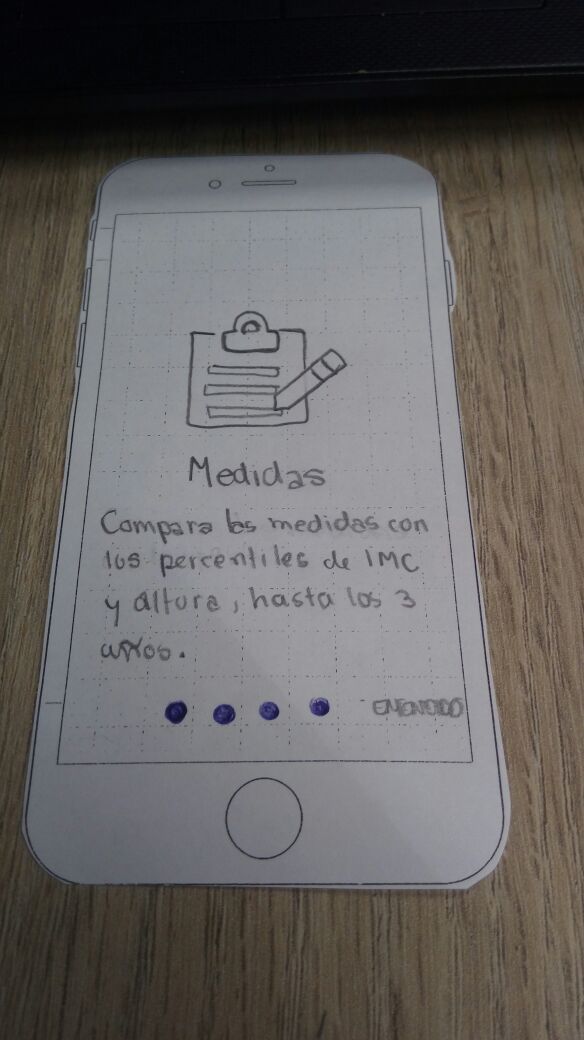 Medidas
Compara las medidas con
los percentiles de IMC
y altura, hasta los 3
años.